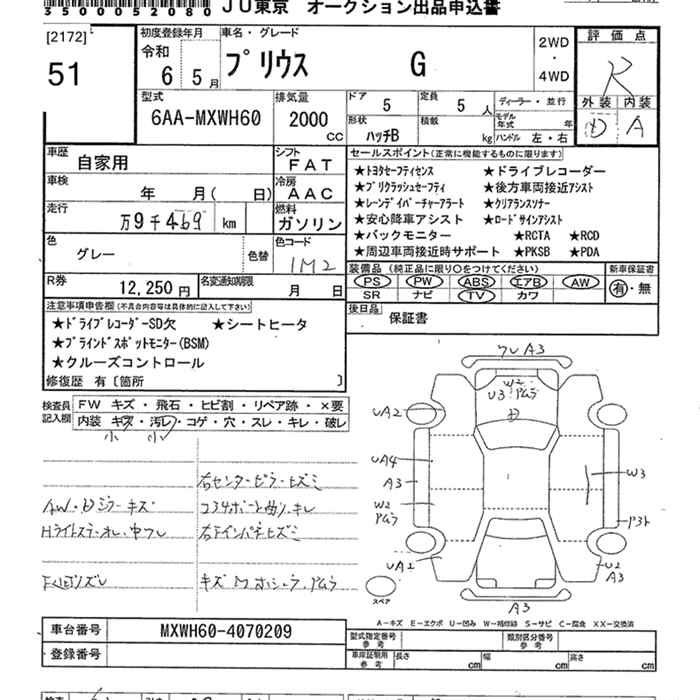 3500052080 JU東京 オークション出品申込書
[2172]
51
初度登録年月
令和
6 5月
車名・グレード
プリウス G
2WD
・
4WD
評価点
R
外装 内装
D A
型式
6AA-MXWH60
排気量
2000
CC
ドア 5
定員 5人
形状 ハッチB
積載 kg
ディーラー・並行
モデル年式 年
ハンドル 左・右
車歴
自家用
シフト
FAT
車検
年 月(日)
冷房
AAC
走行
万9千469 km
燃料
ガソリン
色
グレー
色替
色コード
1M2
R券
12,250円
名変通知期限
月 日
セールスポイント(正常に機能するものに限ります)
★トヨタセーフティセンス ★ドライブレコーダー
★プリクラッシュセーフティ ★後方車両接近アシスト
★レーンデイパーチャーアラート ★クリアランスソナー
★安心降車アシスト ★ロードサインアシスト
★バックモニター ★RCTA ★RCD
★周辺車両接近時サポート ★PKSB ★PDA
装備品(純正品に限り○をつけてください)
PS PW ABS エアB AW
SR ナビ TV カワ
新車保証書
有・無
後日品
保証書
注意事項申告欄(不具合内容等は具体的に記入して下さい)
★ドライブレコーダーSD欠 ★シートヒータ
★ブラインドスポットモニター(BSM)
★クルーズコントロール
修復歴 有〔箇所 〕
検査員記入欄
FW キズ・飛石・ヒビ割・リペア跡・×要
内装 キズ・汚レ・コゲ・穴・スレ・キレ・破レ
小 小
右センターピラーヒズミ
AW・Dミラーキズ
コアサポート曲り、キレ
Hライトステーオレ、中フレ
右Fインパネヒズミ
キズ M ホシュウ、アムラ
フレ A3
W2
U3 アムラ
UA2
UA4
A3
W2
アムラ
UA2
W3
U2
A3
A3
スペア
A-キズ E-エクボ U-凹み W-補修跡 S-サビ C-腐食 XX-交換済
車台番号
MXWH60-4070209
登録番号
型式指定番号
参考
類別区分番号
参考
車庫証明用
参考
長さ cm
幅 cm
高さ cm